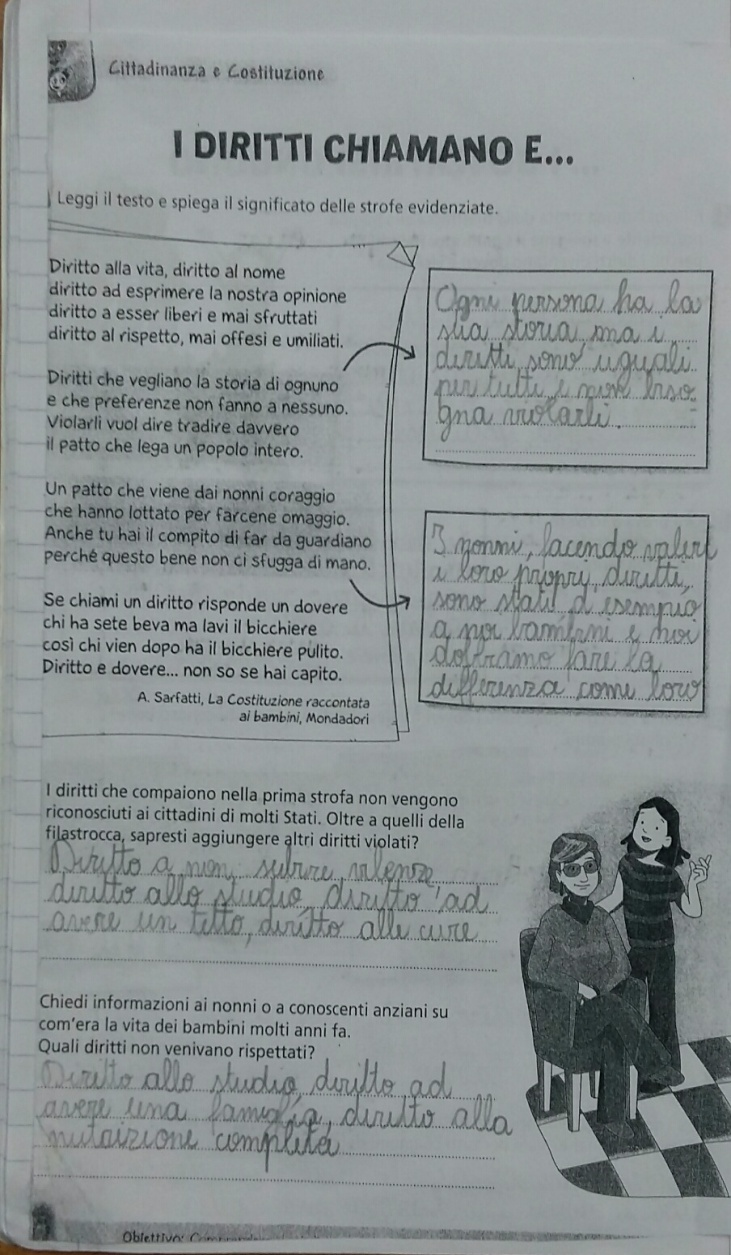 Cittadinanza e Costituzione
I DIRITTI CHIAMANO E...
Leggi il testo e spiega il significato delle strofe evidenziate.
Diritto alla vita, diritto al nome
diritto ad esprimere la nostra opinione
diritto a esser liberi e mai sfruttati
diritto al rispetto, mai offesi e umiliati.
Diritti che vegliano la storia di ognuno
e che preferenze non fanno a nessuno.
Violarli vuol dire tradire davvero
il patto che lega un popolo intero.
Un patto che viene dai nonni coraggio
che hanno lottato per farcene omaggio.
Anche tu hai il compito di far da guardiano
perché questo bene non ci sfugga di mano.
Se chiami un diritto risponde un dovere
chi ha sete beva ma lavi il bicchiere
così chi vien dopo ha il bicchiere pulito.
Diritto e dovere... non so se hai capito.
A. Sarfatti, La Costituzione raccontata
ai bambini, Mondadori
Ogni persona ha la
sua storia, ma i
diritti sono uguali
per tutti e non biso
gna violarli.
I nonni, facendo valere
i loro propri diritti,
sono stati d'esempio
a noi bambini e noi
dobbiamo fare la
differenza come loro
I diritti che compaiono nella prima strofa non vengono
riconosciuti ai cittadini di molti Stati. Oltre a quelli della
filastrocca, sapresti aggiungere altri diritti violati?
Diritto a non subire
diritto allo studio, diritto ad
avere un tetto, diritto alle cure
Chiedi informazioni ai nonni o a conoscenti anziani su
com'era la vita dei bambini molti anni fa.
Quali diritti non venivano rispettati?
Diritto allo studio, diritto ad
avere una famiglia, diritto alla
nutrizione completa
Obiettivo: